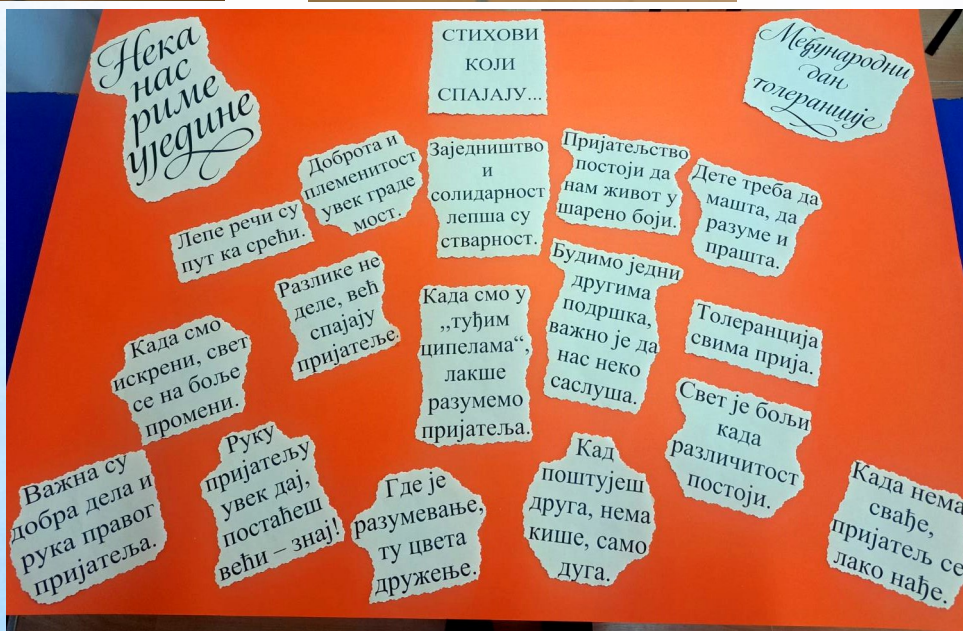 Нека
нас
риме
уједине
СТИХОВИ
КОЈИ
СПАЈАЈУ...
Међународни
дан
толеранције
Лепе речи су
пут ка срећи.
Доброта и
племенитост
увек граде
мост.
Заједништво
и
солидарност
лепша су
стварност.
Пријатељство
постоји да
нам живот у
шарено боји.
Дете треба да
машта, да
разуме и
прашта.
Када смо
искрени, свет
се на боље
промени.
Разлике не
деле, већ
спајају
пријатеље.
Када смо у
„туђим
ципелама“,
лакше
разумемо
пријатеља.
Будимо једни
другима
подршка,
важно је да
нас неко
саслуша.
Толеранција
свима прија.
Свет је бољи
када
различитост
постоји.
Важна су
добра дела и
рука правог
пријатеља.
Руку
пријатељу
увек дај,
постаћеш
већи – знај!
Где је
разумевање,
ту цвета
дружење.
Кад
поштујеш
друга, нема
кише, само
дуга.
Када нема
свађе,
пријатељ се
лако нађе.